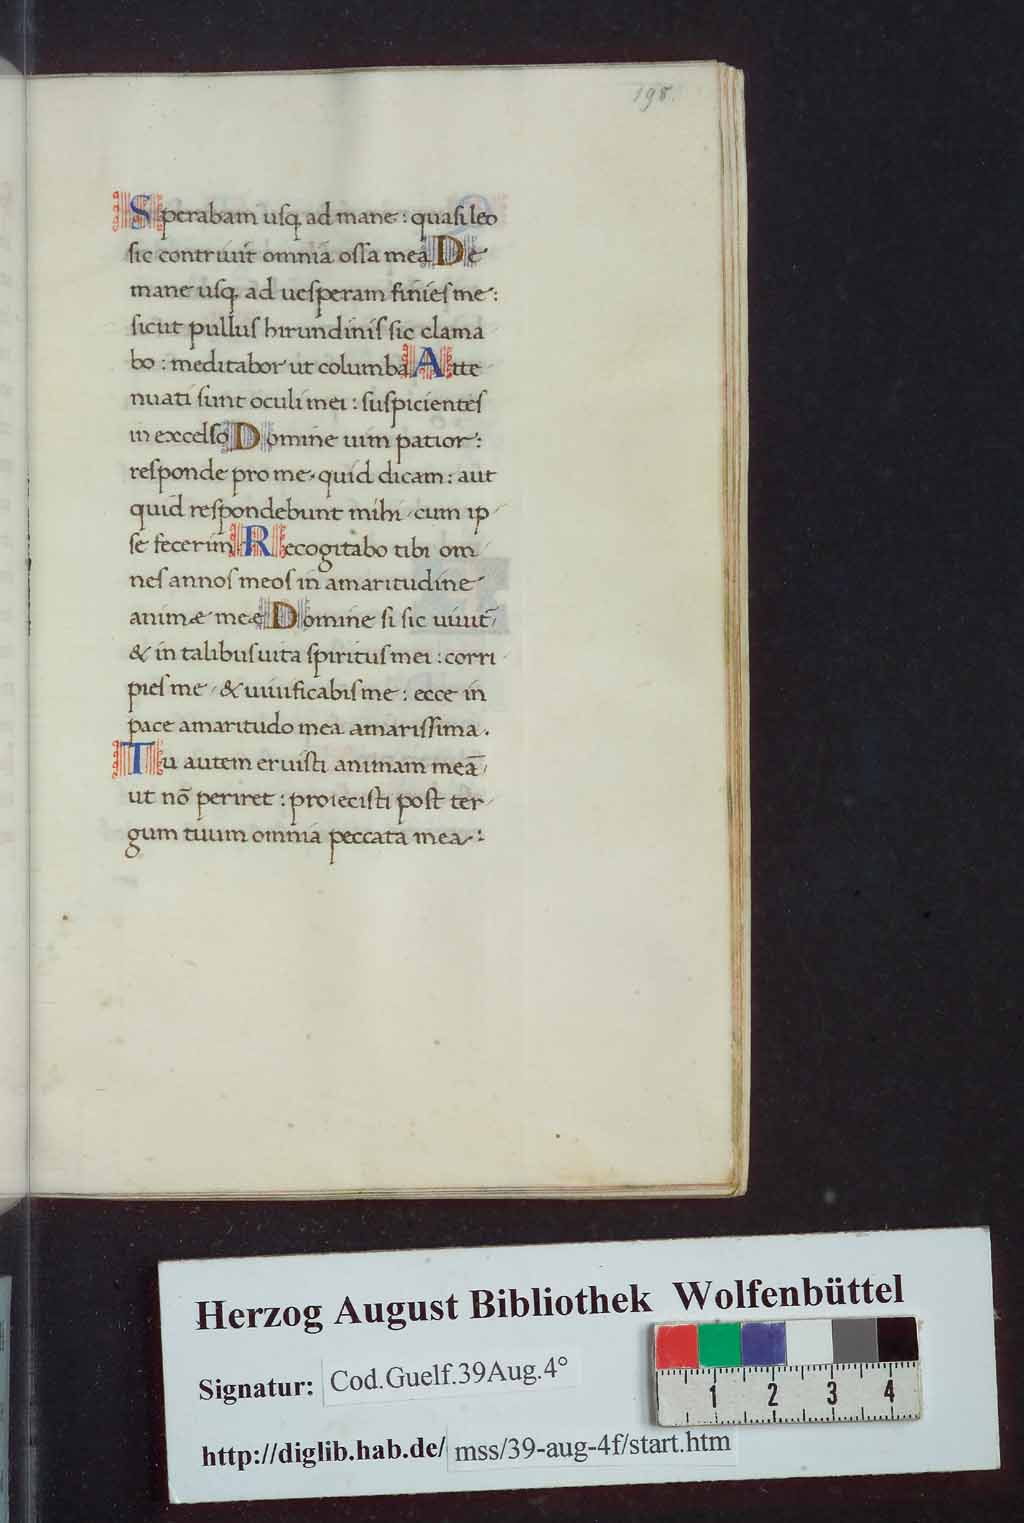 198.
Sperabam usq. ad mane: quasi leo
sic contriuit omnia ossa mea De
mane usq. ad uesperam finies me:
sicut pullus hirundinis sic clama
bo: meditabor ut columba Atte
nuati sunt oculi mei: suspicientes
in excelso Domine uim patior:
responde pro me, quid dicam: aut
quid respondebunt mihi cum ip
se fecerim Recogitabo tibi om
nes annos meos in amaritudine
animæ meæ Domine si sic uiuit̄,
& in talibus uita spiritus mei: corri
pies me, & uiuificabis me: ecce in
pace amaritudo mea amarissima.
Tu autem eruisti animam meā,
ut nō periret: proiecisti post ter
gum tuum omnia peccata mea:
Herzog August Bibliothek Wolfenbüttel
Signatur: Cod.Guelf.39Aug.4°
http://diglib.hab.de/ mss/39-aug-4f/start.htm
1 2 3 4